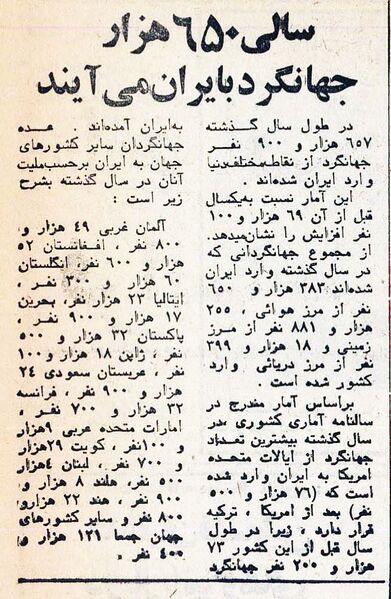 سالی ۶۵۰ هزار
جهانگرد بایران می‌آیند
در طول سال گذشته
۶۵۷ هزار و ۹۰۰ نفر
جهانگرد از نقاط مختلف دنیا
وارد ایران شده‌اند .
این آمار نسبت به یکسال
قبل از آن ۶۹ هزار و ۱۰۰
نفر افزایش را نشان میدهد.
از مجموع جهانگردانی که
در سال گذشته وارد ایران
شده‌اند ۳۸۳ هزار و ۶۵۰
نفر از مرز هوائی ، ۲۵۵
هزار و ۸۸۱ نفر از مرز
زمینی و ۱۸ هزار و ۳۹۹
نفر از مرز دریائی وارد
کشور شده است .
براساس آمار مندرج در
سالنامه آماری کشوری ، در
سال گذشته بیشترین تعداد
جهانگرد از ایالات متحده
امریکا به ایران وارد شده
است که (۷۶ هزار و ۵۰۰
نفر) بعد از امریکا ، ترکیه
قرار دارد ، زیرا در طول
سال قبل از این کشور ۷۳
هزار و ۲۰۰ نفر جهانگرد
به ایران آمده‌اند . عده
جهانگردان سایر کشورهای
جهان به ایران برحسب ملیت
آنان در سال گذشته بشرح
زیر است :
آلمان غربی ۴۹ هزار و
۸۰۰ نفر ، افغانستان ۵۲
هزار و ۶۰۰ نفر، انگلستان
۶۰ هزار و ۳۰۰ نفر ،
ایتالیا ۲۳ هزار نفر، بحرین
۱۷ هزار و ۹۰۰ نفر ،
پاکستان ۳۲ هزار و ۵۰۰
نفر ، ژاپن ۱۸ هزار و ۱۰۰
نفر ، عربستان سعودی ۲۴
هزار و ۹۰۰ نفر ، فرانسه
۳۲ هزار و ۷۰۰ نفر ،
امارات متحده عربی ۹ هزار
و ۱۰۰ نفر ، کویت ۲۹ هزار
و ۷۰۰ نفر ، لبنان ۴ هزار و
۵۰۰ نفر، هلند ۸ هزار و
۹۰۰ نفر ، هند ۲۲ هزار و
۸۰۰ نفر و سایر کشورهای
جهان جمعا ۱۲۱ هزار و
۴۰۰ نفر .